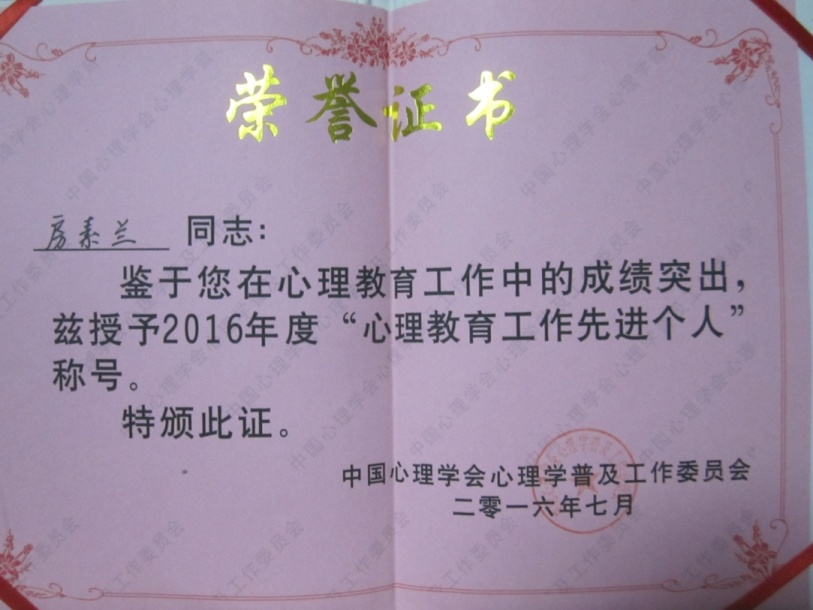 荣誉证书
房素兰 同志：
鉴于您在心理教育工作中的成绩突出，
兹授予2016年度“心理教育工作先进个人”
称号。
特颁此证。
中国心理学会心理学普及工作委员会
二零一六年七月